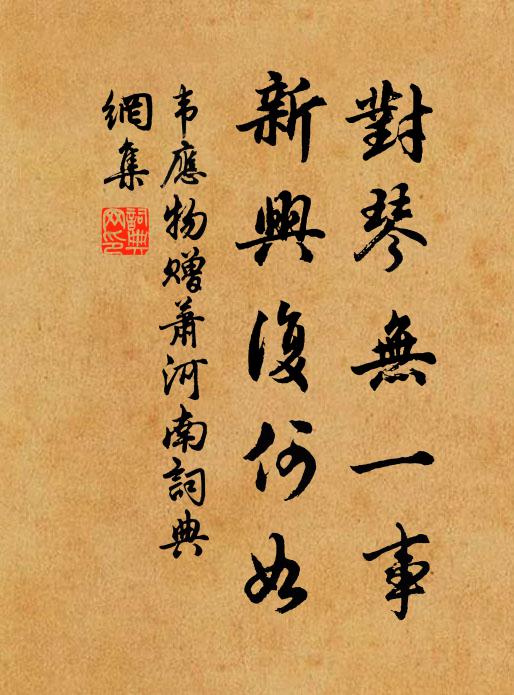 對琴無一事
新興復何如
韦應物贈蕭河南詞典
網集
詞典網印